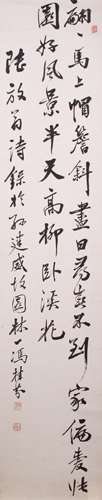 翩翩馬上帽簷斜盡日尋春不到家偏愛張
園好風景半天高柳臥溪花
陸放翁詩錄於孫建威故園林一馮桂芬